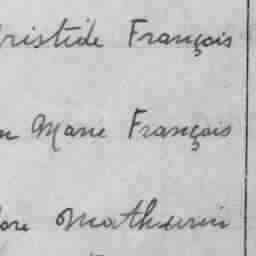 ristide François
Marie François
Mathurin